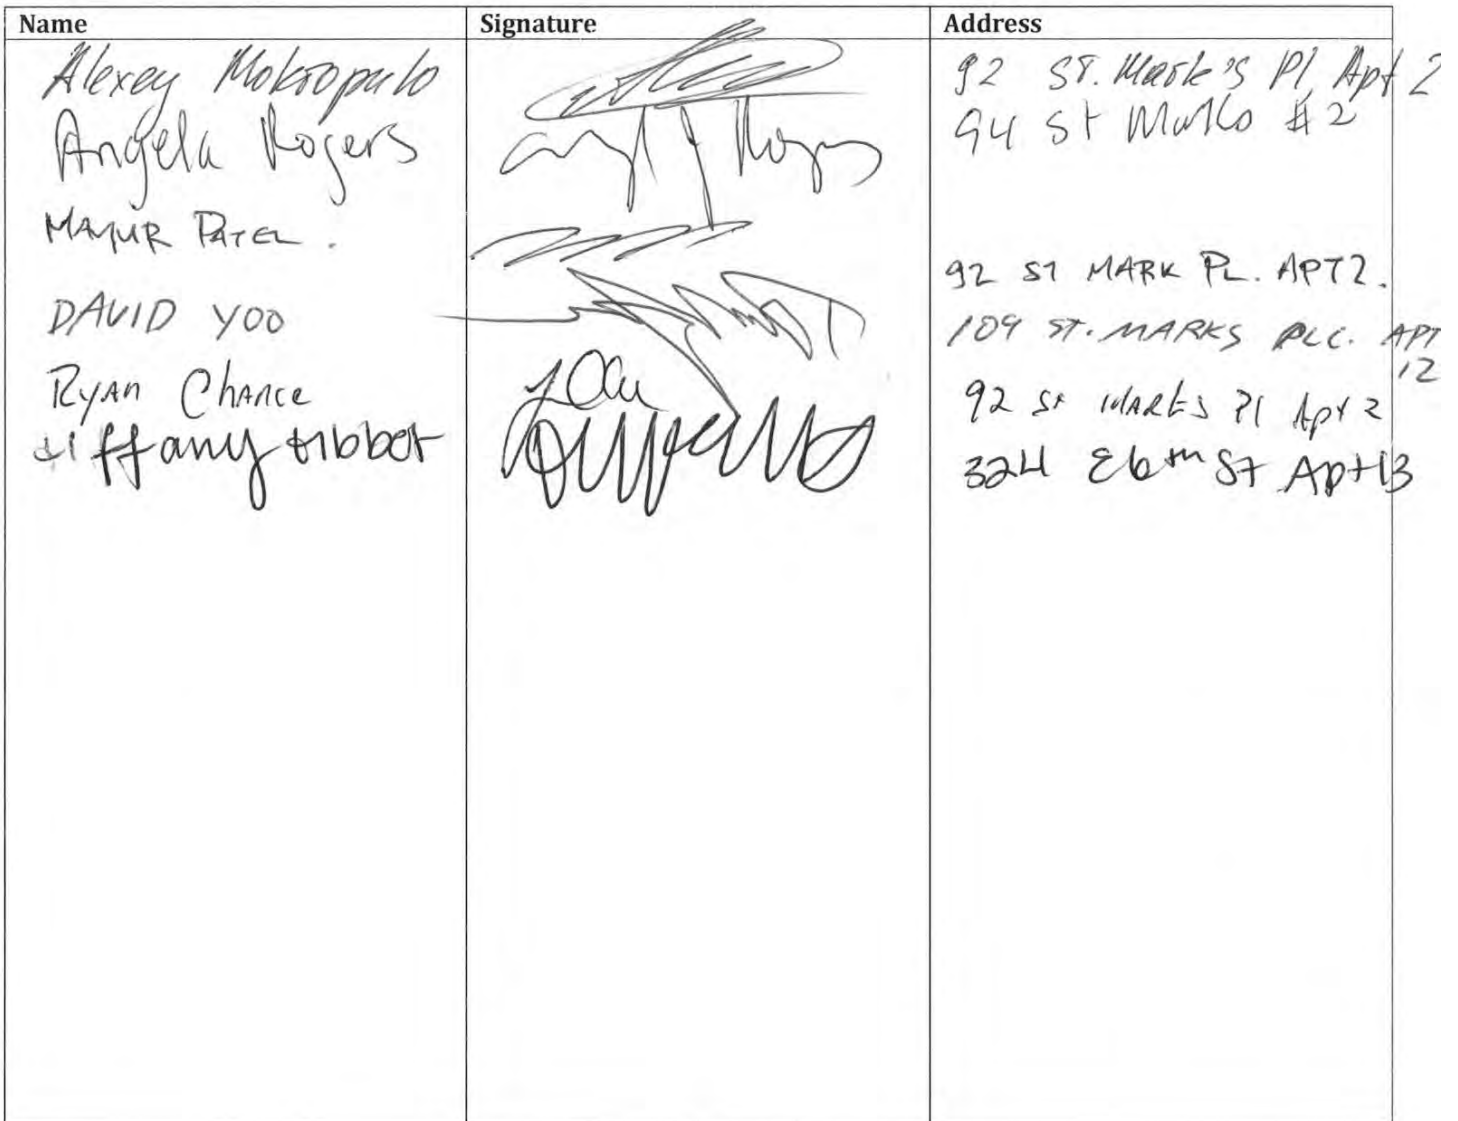 Name Signature Address
Alexey Mokropulo 92 ST. Mark's Pl Apt 2
Angela Rogers 94 St Marks #2
MAYUR PATEL. 92 ST MARK PL. APT 2.
DAVID YOO 109 ST. MARKS PLC. APT 12
Ryan Chance 92 St MARKS Pl Apt 2
tiffany tibbot 324 E6th St Apt 13